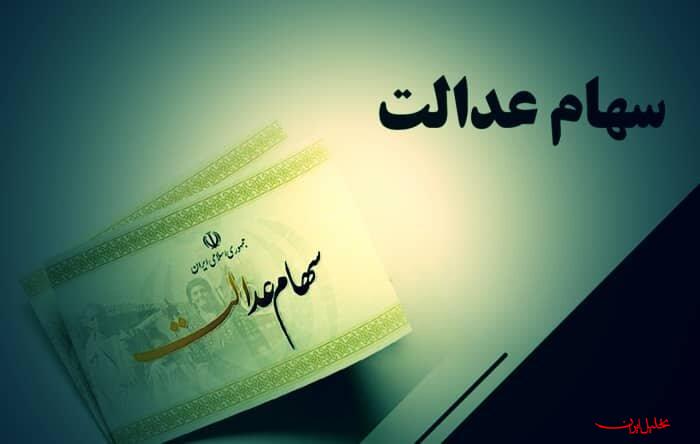 سهام عدالت
جمهوری اسلامی ایران
سهام عدالت
تحلیل ایران